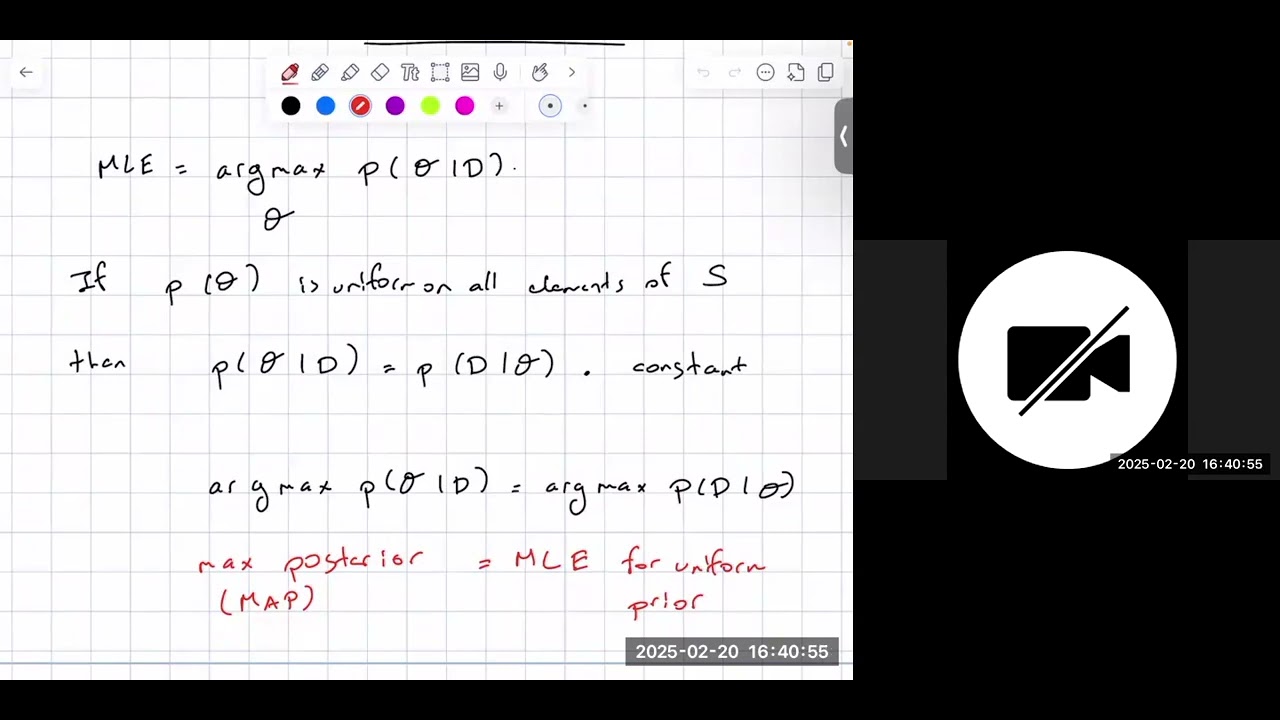 Tt
MLE = argmax p(θ|D).
θ
If p(θ) is uniform on all elements of S
then p(θ|D) = p(D|θ) . constant
argmax p(θ|D) = argmax P(D|θ)
max posterior = MLE for uniform
(MAP) prior
2025-02-20 16:40:55
2025-02-20 16:40:55